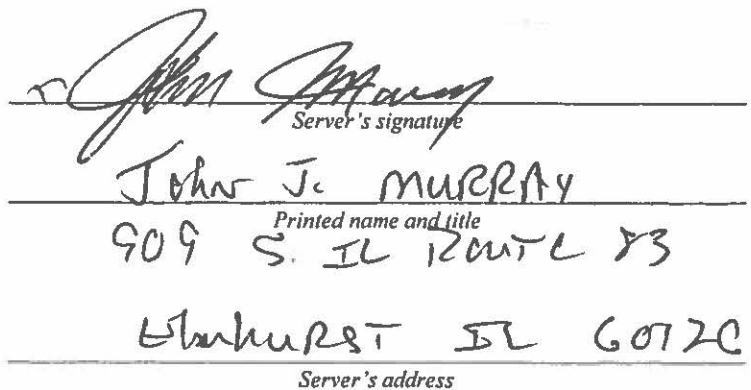 John Murray
Server's signature
John J. MURRAY
Printed name and title
909 S. IL Route 83
Elmhurst IL 60126
Server's address